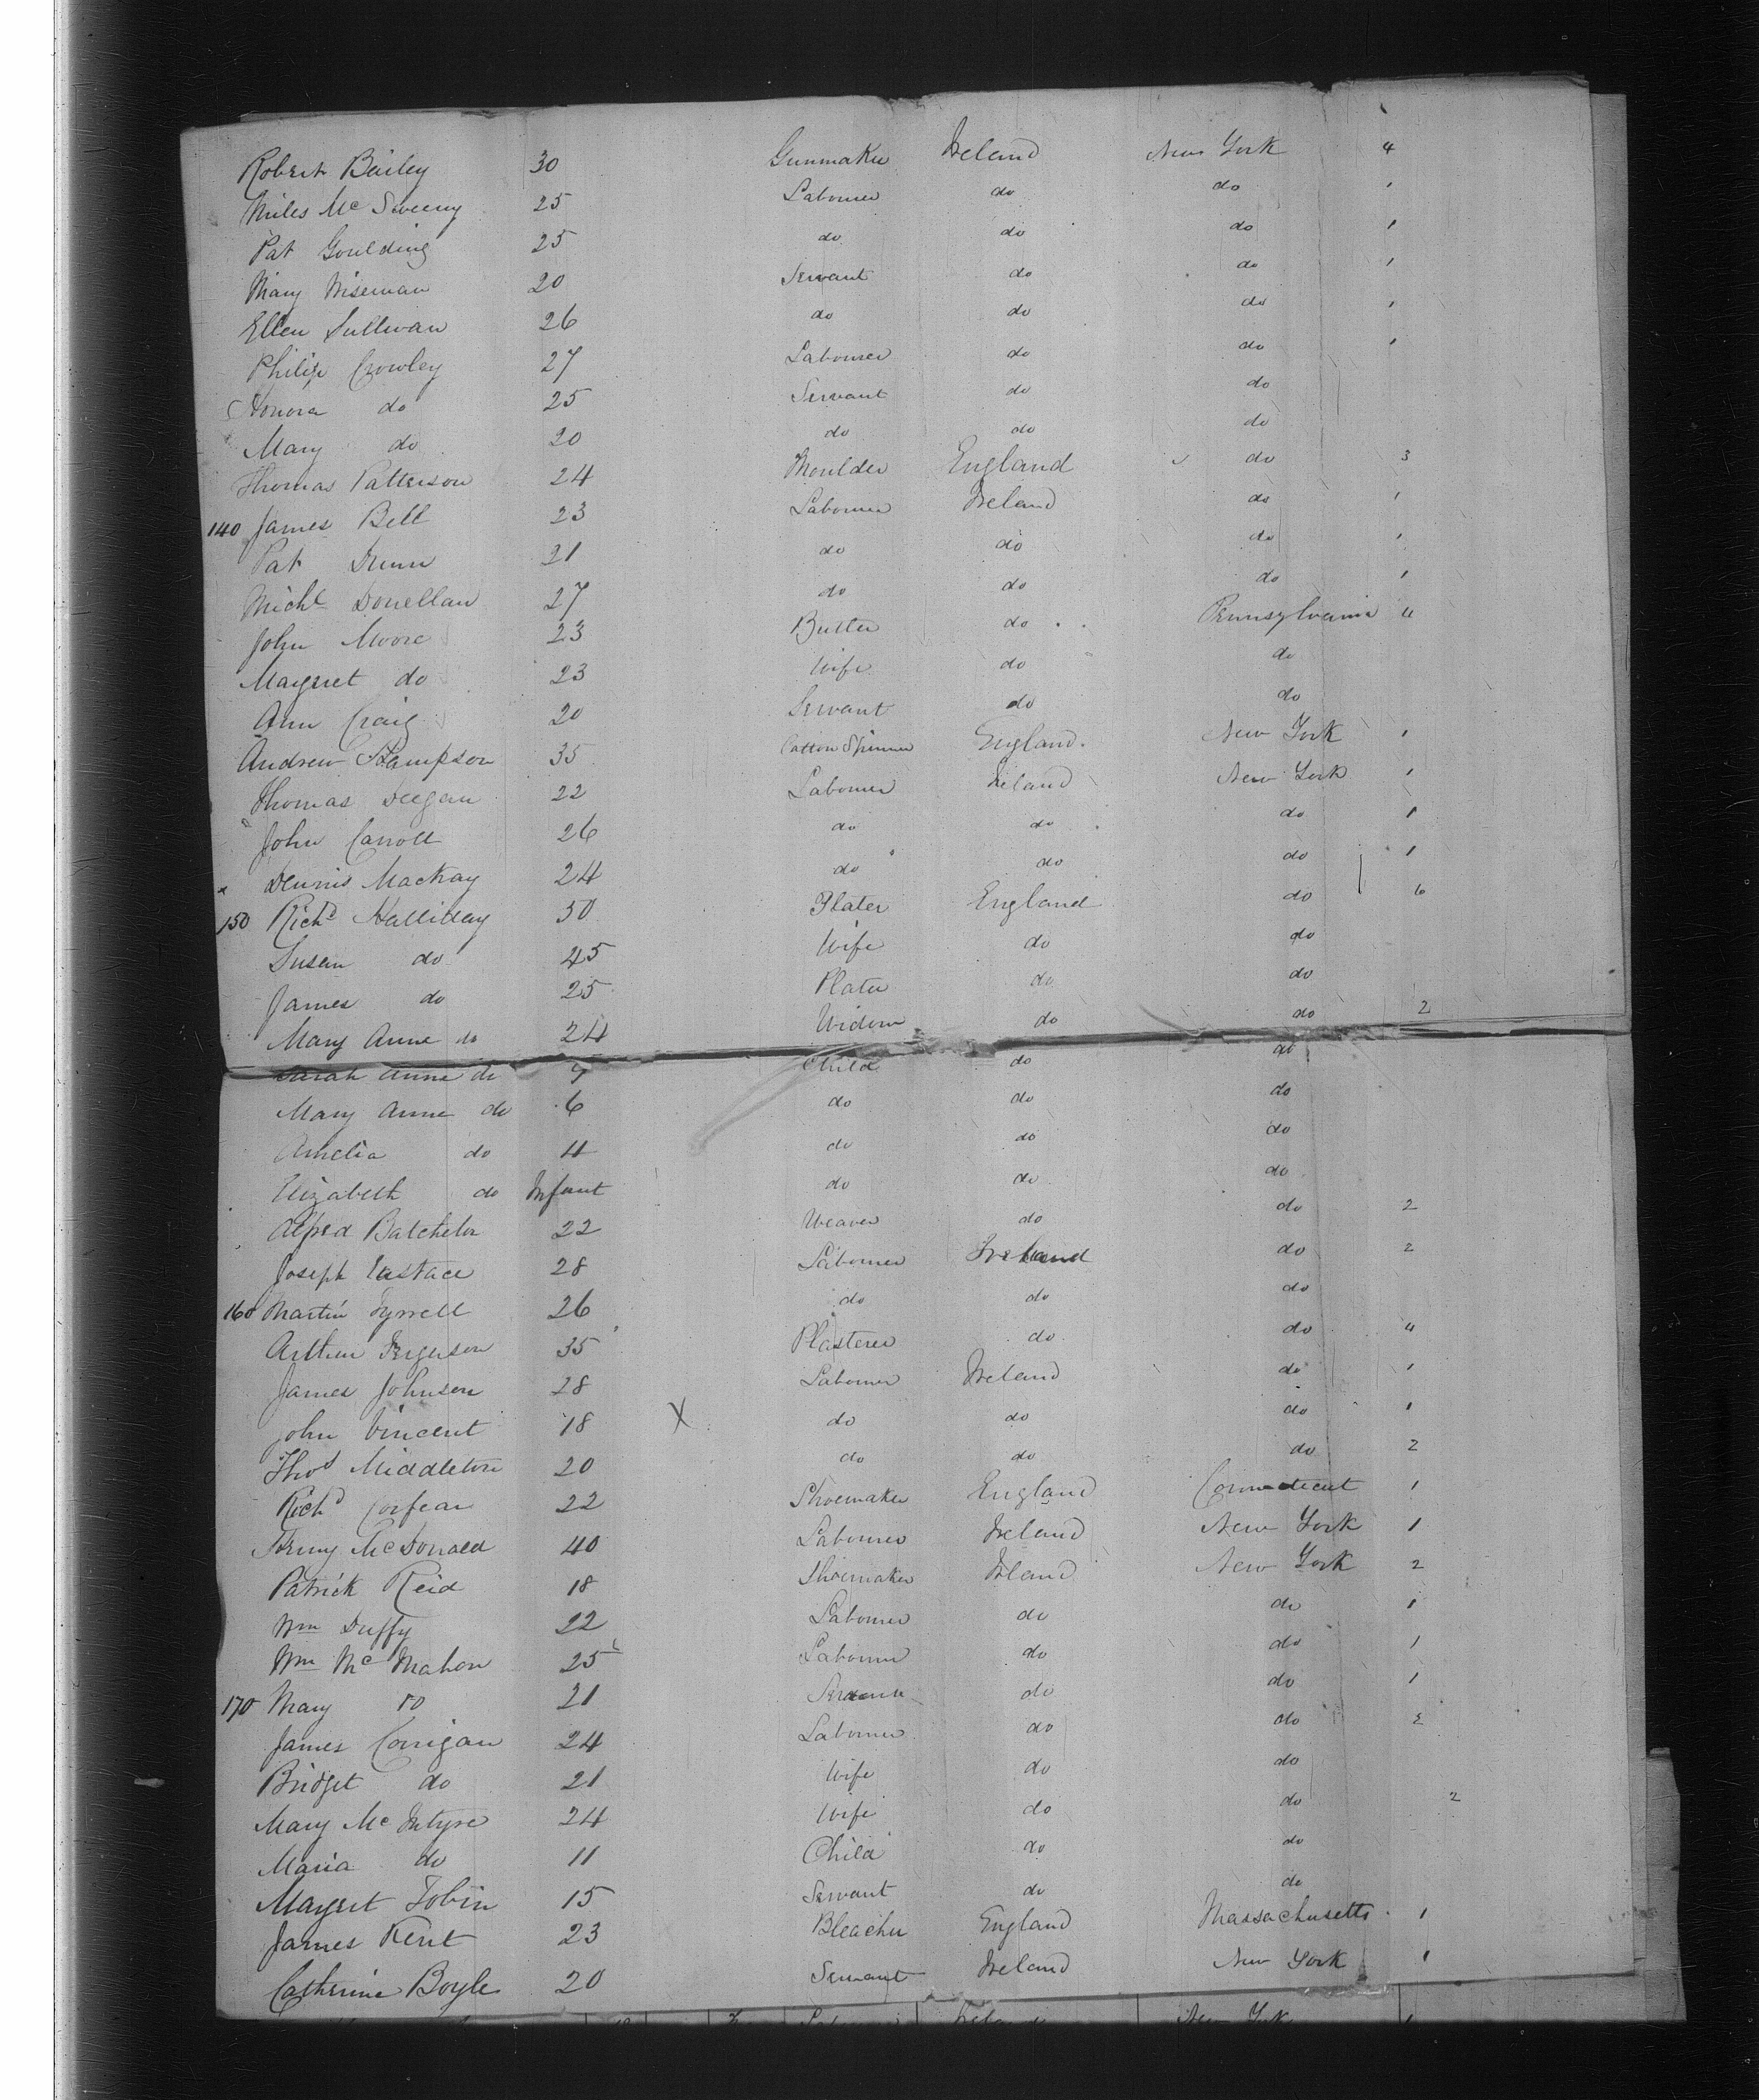 Robert Bailey 30 Gunmaker Ireland New York 4
Miles Mc Sweeny 25 Labourer do do 1
Pat Goulding 25 do do do 1
Mary Wiseman 20 Servant do do 1
Ellen Sullivan 26 do do do 1
Philip Crowley 27 Labourer do do 1
Honora do 25 Servant do do
Mary do 20 do do do
Thomas Patterson 24 Moulder England do 3
140 James Bell 23 Labourer Ireland do 1
Pat Dunn 21 do do do 1
Michl Donellan 27 do do do 1
John Moore 23 Butler do Pennsylvania 4
Margret do 23 Wife do do
Ann Craig 20 Servant do do
Andrew Hampson 35 Cotton Spinner England. New York 1
Thomas Deegan 22 Labourer Ireland New York 1
John Carroll 26 do do do 1
Dennis Mackay 24 do do do 1
150 Richd Halliday 50 Plater England do 6
Susan do 45 Wife do do
James do 25 Plater do do
Mary Anne do 24 Widow do do 2
Sarah Anne do 7 Child do do
Mary Anne do 6 do do do
Amelia do 4 do do do
Elizabeth do Infant do do do
Alfred Batchelor 22 Weaver do do 2
Joseph Eustace 28 Labourer Ireland do 2
160 Martin Tyrrell 26 do do do
Arthur Ferguson 35 Plasterer do do 4
James Johnson 28 Labourer Ireland do 1
John Vincent 18 X do do do 1
Thos Middleton 20 do do do 2
Richd 22 Shoemaker England Connecticut 1
McDonald 40 Labourer Ireland New York 1
Patrick Reid 18 Shoemaker Ireland New York 2
Wm Duffy 22 Labourer do do 1
Wm Mc Mahon 25 Labourer do do 1
170 Mary do 21 Servant do do 1
James Corrigan 24 Labourer do do 2
Bridget do 21 Wife do do
Mary Mc Intyre 24 Wife do do 2
Maria do 11 Child do do
Margret Tobin 15 Servant do do
James Kent 23 Bleacher England Massachusetts 1
Catherine Boyle 20 Servant Ireland New York 1